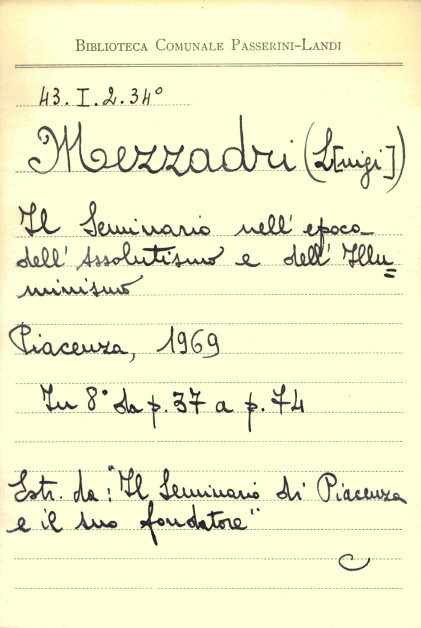 BIBLIOTECA COMUNALE PASSERINI-LANDI
43. I. 2. 34°
Mezzadri (L[uigi])
Il Seminario nell'epoca
dell'Assolutismo e dell'Illu=
minismo
Piacenza, 1969
In 8° da p. 37 a p. 74
Estr. da: "Il Seminario di Piacenza
e il suo fondatore"